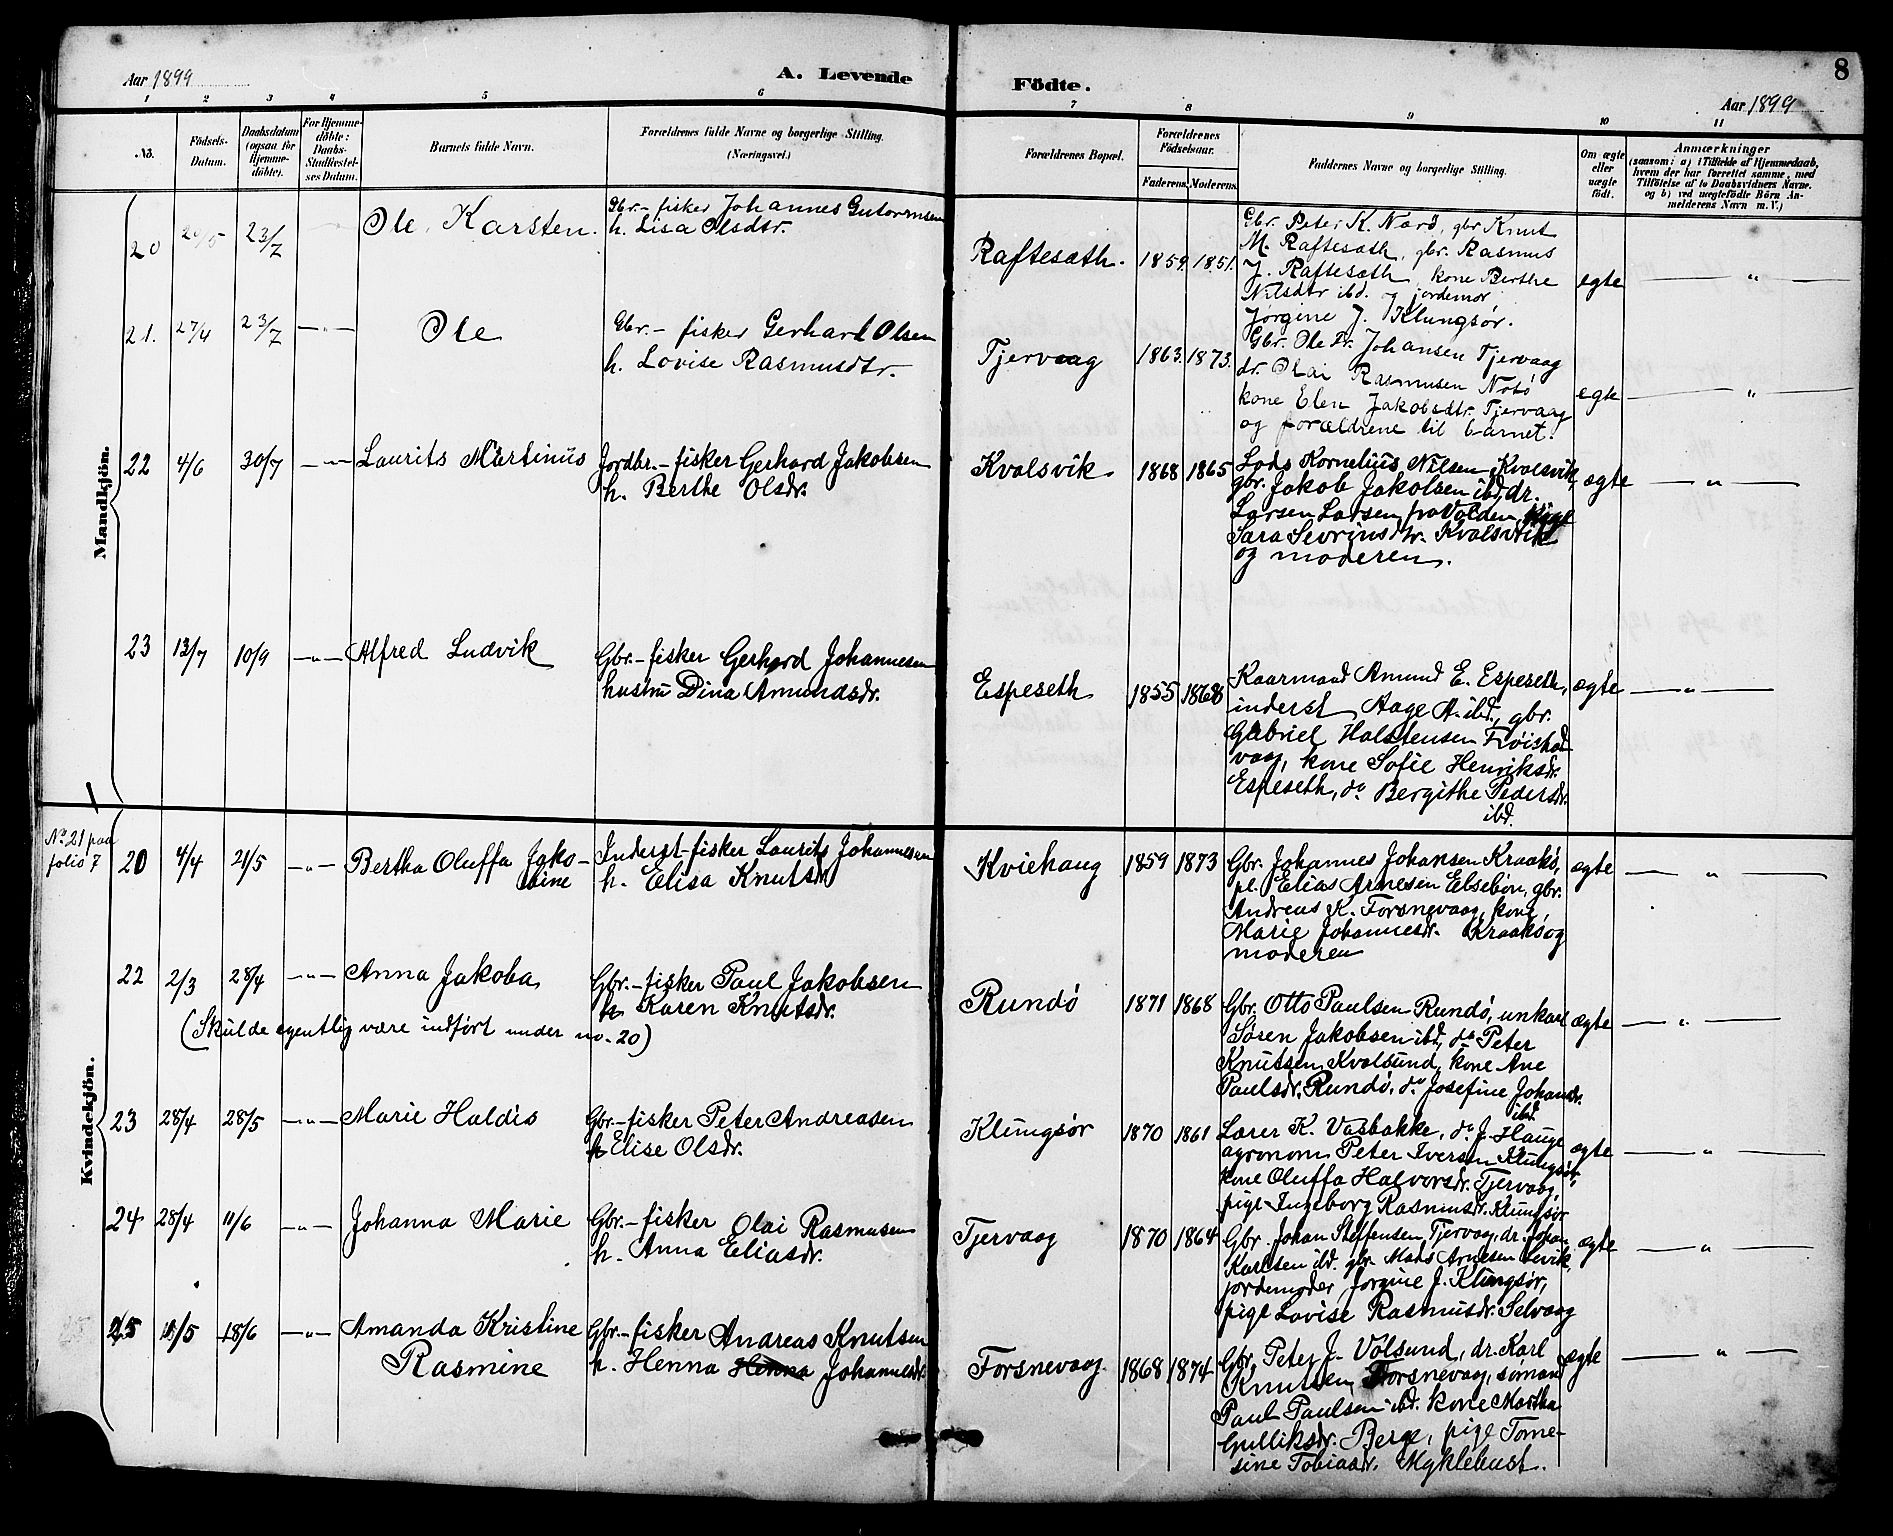 Aar 1899
A. Levende
Födte.
8
Aar 1899
1 2 3 4 5 6 7 8 9 10 11
No.
Födsels-
Datum.
Daabsdatum
(ogsaa for
Hjemme-
döbte).
For Hjemme-
döbte:
Daabs-
Stadfæstel-
ses Datum.
Barnets fulde Navn.
Forældrenes fulde Navne og borgerlige Stilling.
(Næringsvei.)
Forældrenes Bopæl.
Forældrenes
Födselsaar.
Faderens. Moderens.
Faddernes Navne og borgerlige Stilling.
Om ægte
eller
uægte
födt.
Anmærkninger
(saasom: a) i Tilfælde af Hjemmedaab,
hvem der har forrettet samme, med
Tilföielse af to Daabsvidners Navne,
og b) ved uægtefödte Börn An-
melderens Navn m. V.)
Mandkjön.
20 23/7 Ole Karsten. Gbr.- fisker Johannes Gutormsen
h. Lisa Olsdtr.
Raftesæth. 1859. 1851.
Gbr. Peter K. Nærø, gbr Knut
M. Raftesæth, gbr. Rasmus
J. Raftesæth kone Berthe
Nilsdtr ibd. og jordemor
Jørgine J. Klungsør.
egte — " —
21. 27/4 23/7 — " — Ole Gbr.- fisker Gerhard Olsen
h. Lovise Rasmusdtr.
Tjervaag 1863. 1873.
Gbr. Ole Fr. Johansen Tjervaag
dr. Olai Rasmusen Notø
kone Elen Jakobsdtr. Tjervaag
og forældrene til barnet.
egte — " —
22 4/6 30/7 — " — Laurits Martinus Jordbr.- fisker Gerhard Jakobsen
h. Berthe Olsdr.
Kvalsvik 1868 1865
Lods Kornelius Nilsen Kvalsvik,
gbr. Jakob Jakobsen ibd, dr.
Larsen Larsen fra Volden, pige
Sara Sevrinsdtr. Kvalsvik
og moderen.
ægte — " —
23 13/7 10/9 — " — Alfred Ludvik Gbr.- fisker Gerhard Johannesen
hustru Dina Amundsdr.
Espeseth 1855 1868
Kaarmand Amund E. Espeseth,
inderst Aage A. ibd, gbr.
Gabriel Halstensen Frøishol
vaag, kone Sofie Henriksdr.
Espeseth, do Bergithe Pedersdr.
ibd.
ægte — " —
Kvindekjön.
No 21 paa
folio 7
20 4/4 21/5 — " — Bertha Oluffa Jako-
bine
Inderst-fisker Laurits Johannesen
h. Elisa Knutsdr
Kviehaug 1859 1873
Gbr. Johannes Johansen Kraakø,
pl. Elias Arnesen Elsebøn, gbr.
Andreas K. Forsnevaag, kone,
Marie Johannesdr. Kraakø og
moderen
ægte — " —
22 2/3 28/4 — " — Anna Jakoba Gbr.- fisker Paul Jakobsen
h Karen Knutsdr.
(Skulde egentlig være indført under no. 20)
Rundö 1871 1868
Gbr. Otto Paulsen Rundö, unkarl
Søren Jakobsen ibd, do Peter
Knutsen Kvalsund, kone Ane
Paulsdr. Rundö, do Josefine Johansdr.
ibd.
ægte — " —
23 28/4 28/5 — " — Marie Haldis Gbr.- fisker Peter Andreasen
h Elise Olsdr.
Klungsør 1870 1861
Lærer K. Vasbakke, do J. Hauge
agronom Peter Iversen Klungsør,
kone Oluffa Halvorsdr. Tjervaag,
pige Ingeborg Rasmusdr. Klungsør
ægte — " —
24 28/4 11/6 — " — Johanna Marie Gbr.- fisker Olai Rasmusen
h. Anna Eliasdr.
Tjervaag 1870 1864
Gbr. Johan Steffensen Tjervaag, dr. Johan
Karlsen ibd. gbr. Mads Arnesen Levik,
jordemoder Jorgine J. Klungsør,
pige Lovise Rasmusdr. Selvaag
ægte — " —
25 11/5 18/6 — " — Amanda Kristine
Rasmine
Gbr.- fisker Andreas Knutsen
h. Henna Johannesdr.
Forsnevaag 1868 1874
Gbr. Peter J. Volsund, dr. Karl
Knutsen Forsnevaag, sømand
Paul Paulsen ibd. kone Martha
Gulliksdr. Berge, pige Tome-
sine Tobiasdr. Myklebust.
ægte — " —